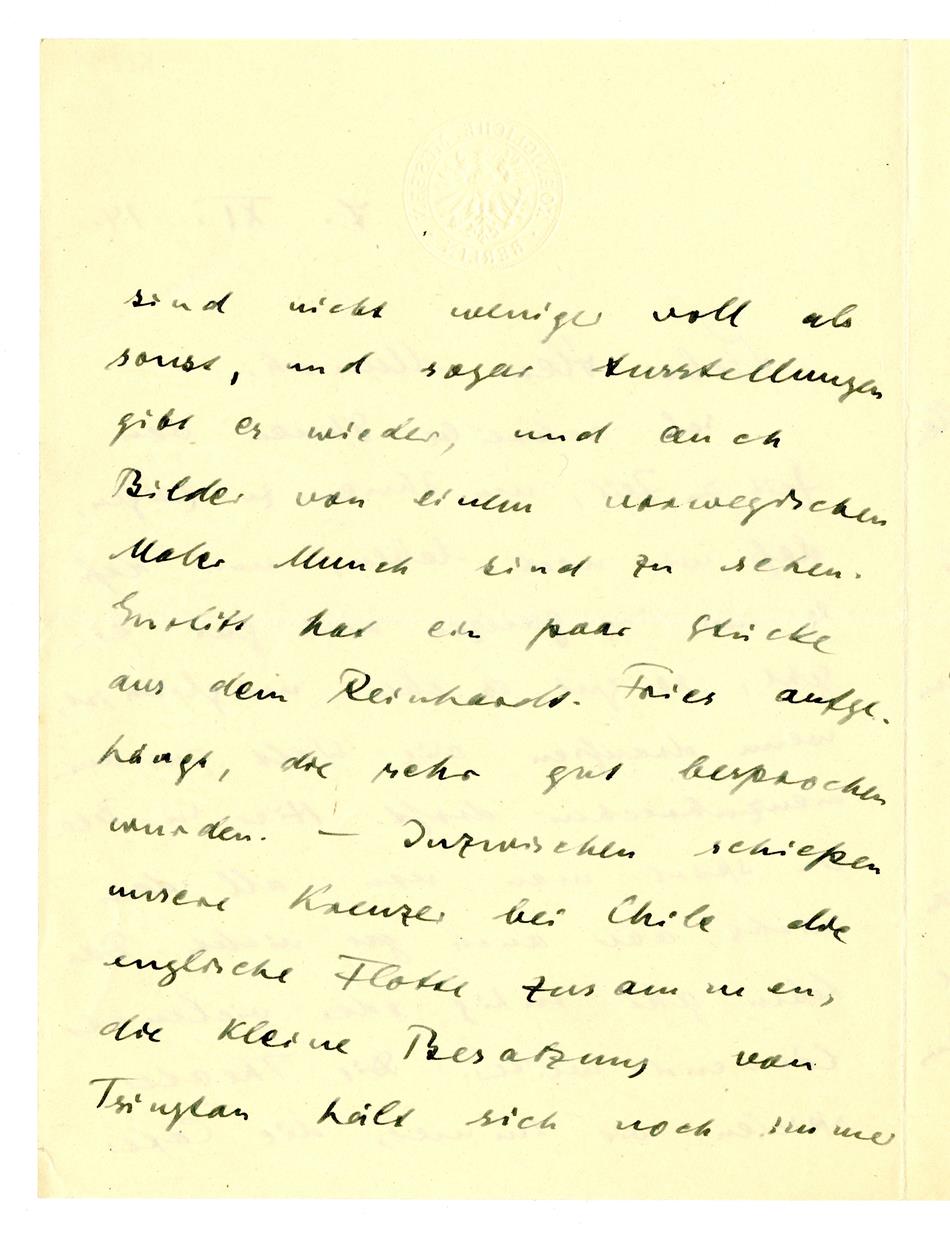 sind nicht weniger voll als
sonst, und sogar Ausstellungen
gibt es wieder, und auch
Bilder von einem norwegischen
Maler Munch sind zu sehen.
Gurlitt hat ein paar Stücke
aus dem Reinhardt-Fries aufge-
hängt, die sehr gut besprochen
wurden. — Inzwischen schießen
unsere Kreuzer bei Chile die
englische Flotte zusammen,
die kleine Besatzung von
Tsingtau hält sich noch immer